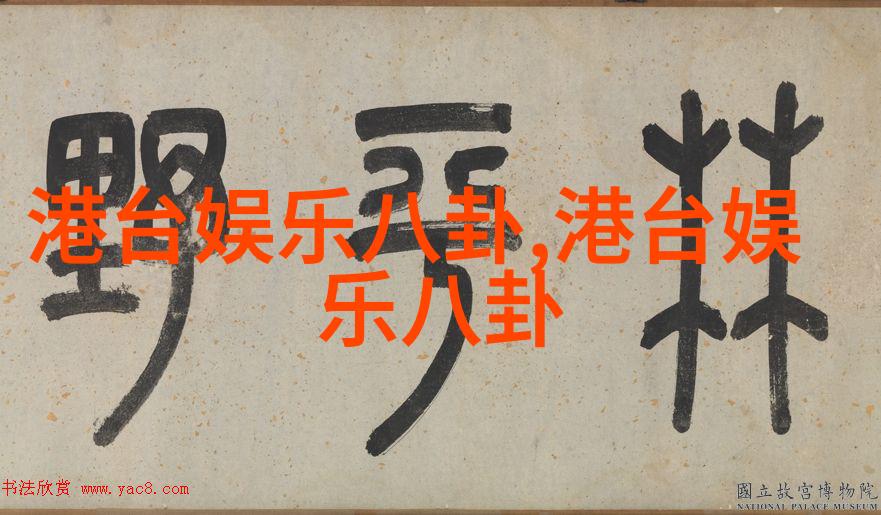 林 野
港台娱乐八卦,港台娱
乐八卦
书法欣赏 www.yac8.com
國立故宮博物院
NATIONAL PALACE MUSEUM